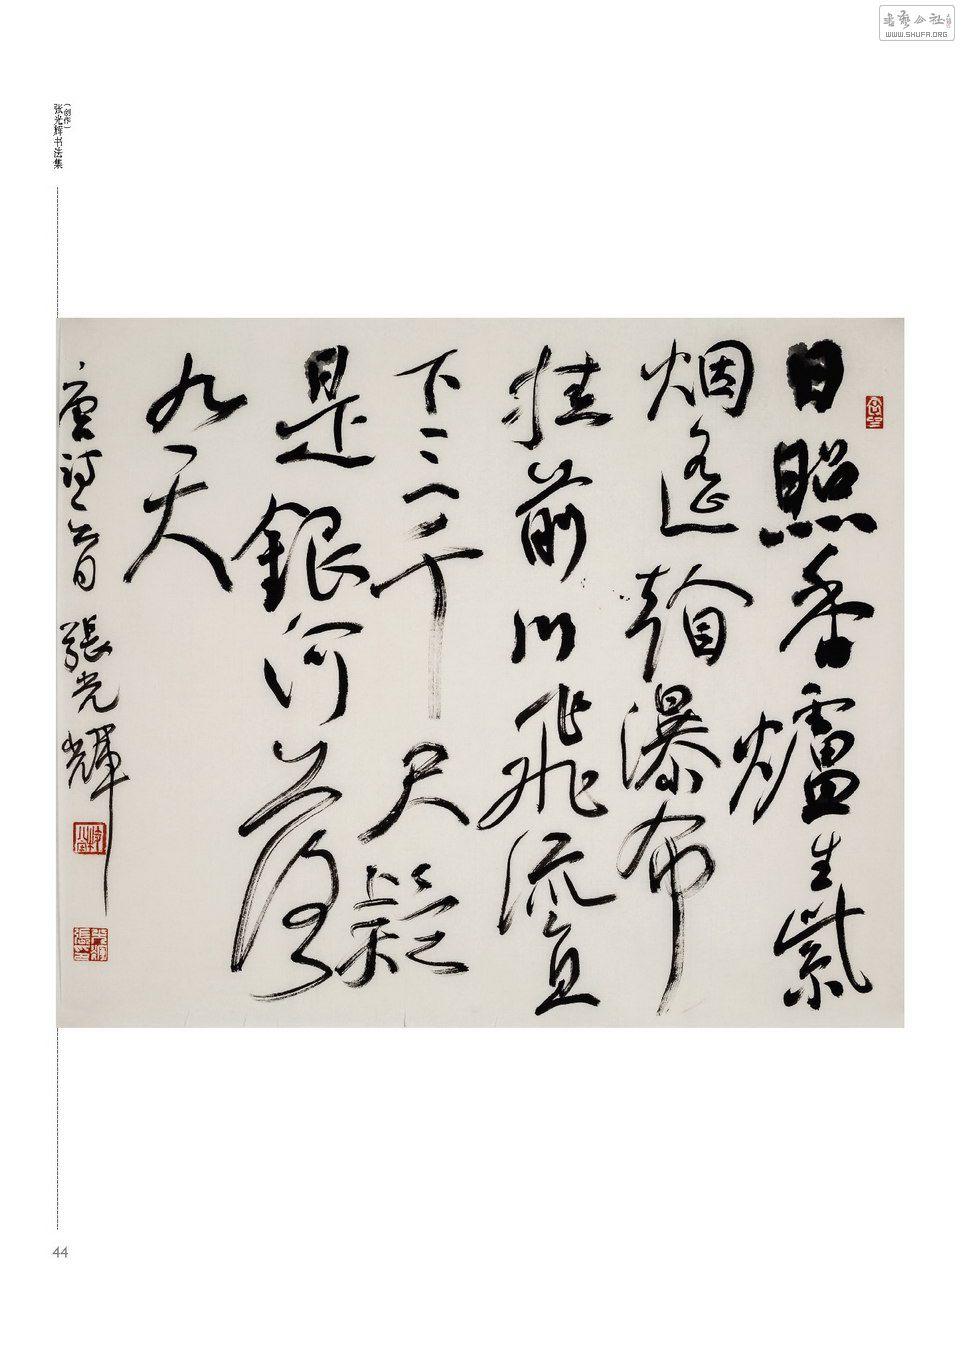 書藝公社
WWW.SHUFA.ORG
(创作)
张光辉书法集
日照香爐生紫
烟遙看瀑布
挂前川飛流直
下三千尺疑
是銀河落
九天
唐詩一首 張光輝
44